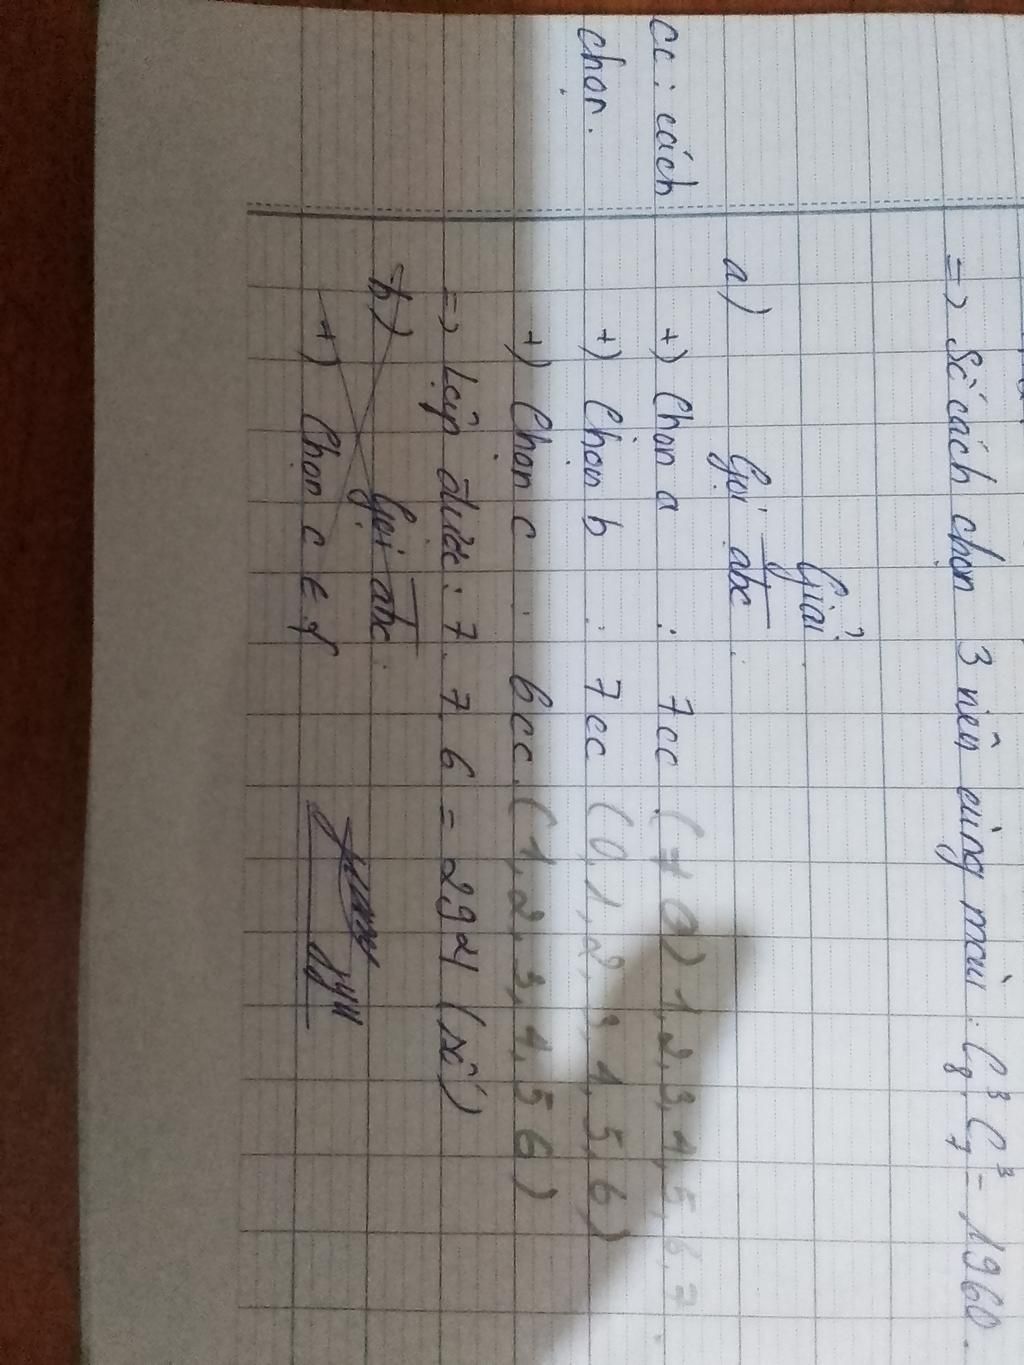 => Số cách chọn 3 viên cùng màu: C₈³.C₇³ = 1960.
Giải
a) Gọi abc
cc: cách
chọn.
+) Chọn a : 7cc (≠ 0) 1, 2, 3, 4, 5, 6, 7
+) Chọn b : 7cc (0, 1, 2, 3, 4, 5, 6)
+) Chọn c : 6cc. (1, 2, 3, 4, 5 6)
=> Lập được: 7. 7. 6 = 294 (số)
b) Gọi abc
+) Chọn c ∈ {